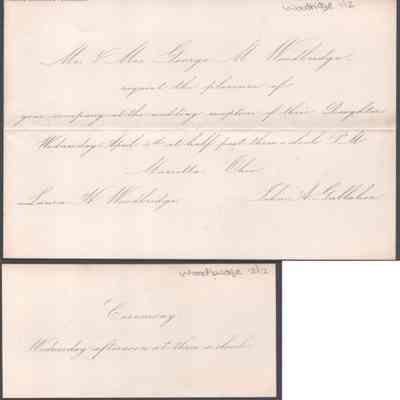 Woodbridge 1/2
Mr. & Mrs. George M. Woodbridge
request the pleasure of
your company at the wedding reception of their Daughter
Wednesday April 5th at half past three o'clock P.M.
Marietta Ohio
Laura H. Woodbridge John A. Gallaher
Woodbridge 2/2
Ceremony
Wednesday afternoon at three o'clock